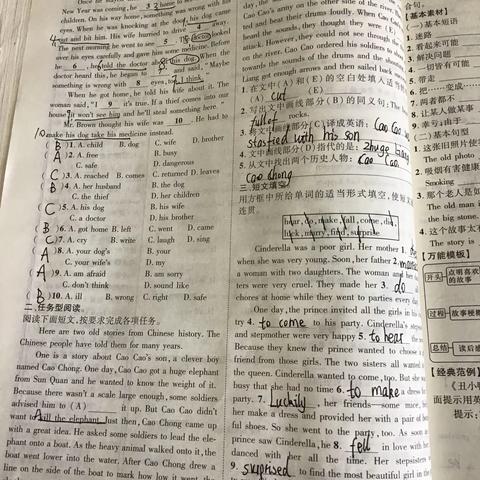 New Year was coming, he 3 2 home to see
children. On his way home, something was wrong with his
eyes. When he was knocking at the door, his dog came
out and bit him. His wife hurried to 4
The next morning he went to see 5 The doctor looked
over his eyes carefully and gave him some medicine. Before
he 6, he told the doctor about his dog. When the
doctor heard this, he began to and said, "Maybe
something is wrong with 8 eyes, too, I think."
When he got home, he told his wife about it. The
woman said, "I 9 it's true. If a thief comes into our
house, it won't see him and he'll steal something here."
Mr. Brown thought his wife was 10. He had to
make his dog take his medicine instead.
(B)1. A. child B. dog C. wife D. brother
(A)2. A. free B. busy
C. safe D. dangerous
(C)3. A. reached B. comes C. returned D. leaves
(B)4. A. her husband B. the dog
C. the thief D. her children
(C)5. A. his dog B. his wife
C. a doctor D. his brother
(B)6. A. got home B. left C. went D. came
(C)7. A. cry B. write C. laugh D. sing
(A)8. A. your dog's B. your
C. your wife's D. my
(A)9. A. am afraid B. am sorry
C. don't think D. sound like
(B)10. A. ill B. wrong C. right D. safe
二、任务型阅读
阅读下面短文,按要求完成各项任务。
Here are two old stories from Chinese history. The
Chinese people have told them for many years.
One is a story about Cao Cao's son, a clever boy
named Cao Chong. One day, Cao Cao got a huge elephant
from Sun Quan and he wanted to know the weight of it.
Because there wasn't a scale large enough, some soldiers
advised him to (A) it up. But Cao Cao didn't
want to kill the elephant. Just then, Cao Chong came up
with a great idea. He asked some soldiers to lead the ele-
phant onto a boat. As the heavy animal walked onto it, the
boat went lower into the water. After Cao Chong drew a
line on the side of the boat to mark how low it went, the
Cao's army on the other side of the river.
ted and beat their drums loudly. When Cao Cao
heard the sounds, they thought they were (E)
attack. However, they could not see through the
river. Cao Cao ordered his soldiers to
wards the sounds of the drums and the shouts.
Liang got enough arrows and then sailed back
1. 在文中(A)和(E)的空白处填入适当的
(A) cut
2. 写出文中画线部分(B)的同义词:
full of rocks
3. 将文中画线部分(C)译成英语: Cao Cao
satisfied with his son
4. 文中画线部分(D)指代的是: zhuge Liang
5. 从文中找出两个历史人物: Cao Cao
Cao chong
三、短文填空
用方框中所给单词的适当形式填空,使短文
连贯。
hear, do, make, fall, come, die,
luck, marry, find, surprise
Cinderella was a poor girl. Her mother 1.
when she was very young. Soon, her father 2.
a woman with two daughters. The woman and her
ters were very cruel. They made her 3. do
chores at home while they went to parties every day
One day, the prince invited all the girls in his
try 4. to come to his party. Cinderella's step
and stepmother were very happy 5. to hear the
Because they knew the prince wanted to choose a
friend from those girls. The two sisters all wanted
the queen. Cinderella wanted to come, too. But she was
busy that she had no time 6. to make a dress
party. 7. Luckily, her friends—some mice,
her make a dress and provided her with a pair of beau
ful shoes. So she went to the party, too. As soon as
prince saw Cinderella, he 8. fell in love with her
danced with her all the time. Her stepsisters
9. surprised to find the most beautiful girl in the
【基本素材】
(一)基本短语
1. 迷路
2. 看起来可能
3. 解决问题
4. 过去曾有可能
5. 带走
6. 把……变成
7. 两者都不
8. 让某人做某事
9. 幸亏;由于
(二)基本句型
1. 这张旧照片使
The old photo
2. 吸烟有害健康
Smoking
3. 那个老人是如
The old man
the big stone.
4. 这个故事太有
The story is
【万能模板】
开头 点明喜欢
的故事
过程 故事梗概
总结 读后感
【经典范例】
《丑小鸭
面提示用英
提示: